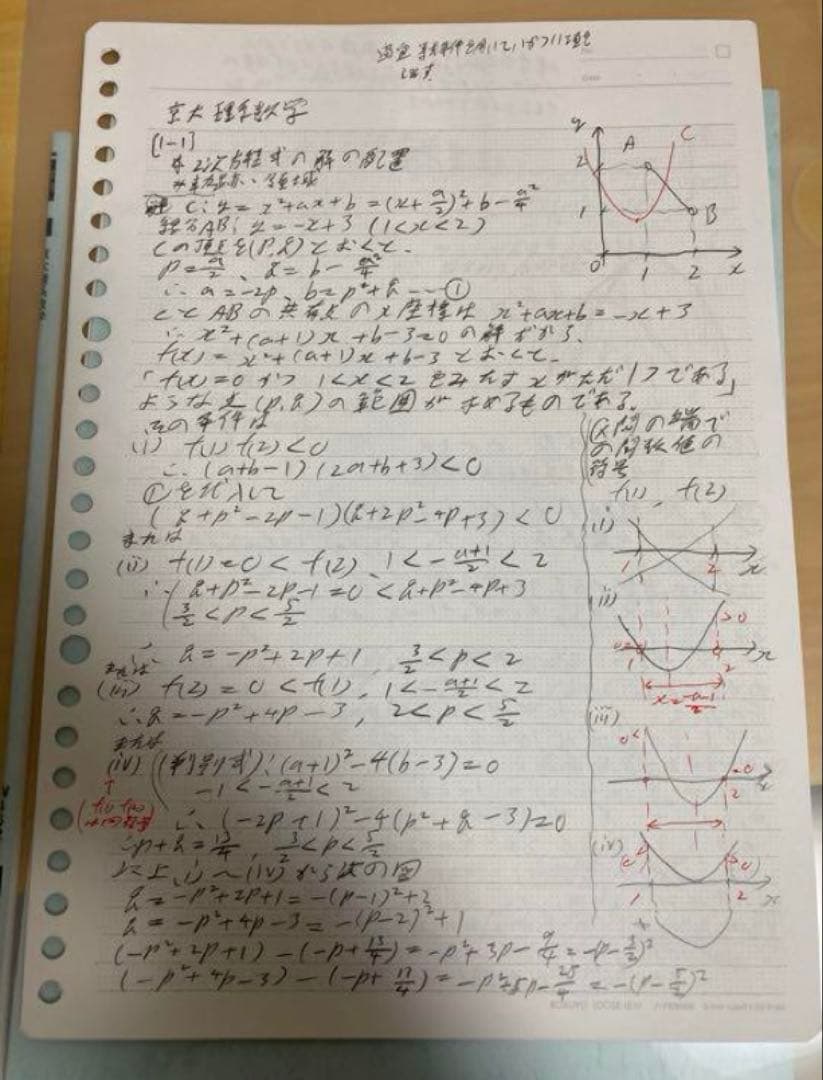 京大理系数学
[1-1]
* 2次方程式の解の配置
C: y = x²+ax+b = (x+a/2)²+b-a²/4
線分AB: y = -x+3 (1<x<2)
Cの頂点を(p,q)とおくと、
p = a/2、 q = b - a²/4
∴ a = -2p, b = p²+q ---①
CとABの共有点のx座標は x²+ax+b = -x+3
∴ x²+(a+1)x+b-3=0 の解だから、
f(x) = x²+(a+1)x+b-3 とおくと、
「f(x)=0 かつ 1<x<2 をみたすxがただ1つである」
ような点(p,q)の範囲が求めるものである。
その条件は
(i) f(1)f(2)<0
∴ (a+b-1)(2a+b+3)<0
①を代入して
(q+p²-2p-1)(q+2p²-4p+3)<0
または
(ii) f(1)=0<f(2)、1<-(a+1)/2<2
∴ q+p²-2p-1=0<q+p²-4p+3
3/2<p<5/2
∴ q=-p²+2p+1, 3/2<p<2
または
(iii) f(2)=0<f(1), 1<-(a+1)/2<2
∴ q=-p²+4p-3, 2<p<5/2
または
(iv) (判別式): (a+1)²-4(b-3)=0
-1<-(a+1)/2<2
∴ (-2p+1)²-4(p²+q-3)=0
∴ p+q=13/4, 3/2<p<5/2
以上、(i)~(iv)から次の図
q=-p²+2p+1=-(p-1)²+2
q=-p²+4p-3=-(p-2)²+1
(-p²+2p+1)-(-p+13/4)=-p²+3p-9/4=-(p-3/2)²
(-p²+4p-3)-(-p+13/4)=-p²+5p-25/4=-(p-5/2)²
y
A
C
2
1
B
0
1
2
x
区間の端で
の関数値の
符号
f(1), f(2)
(i)
1
2
x
ii)
>0
x
1
2
x=-a-1/2
(iii)
0<
2
x
(iv)
>0
1
2
x